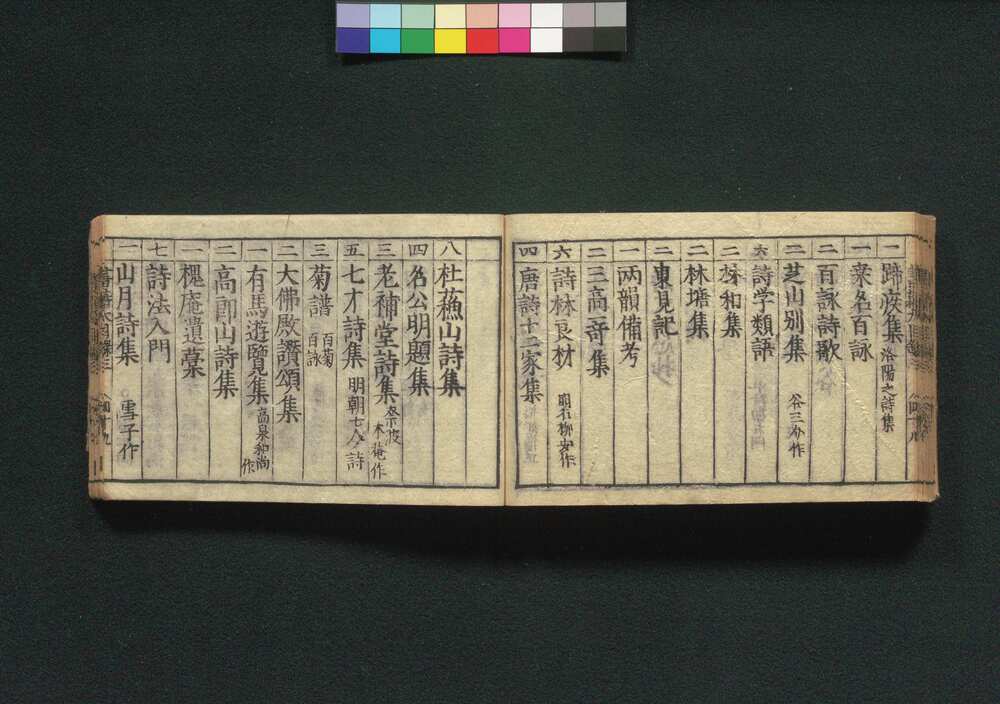 一 歸家集 洛陽之詩集
一 衆名百詠
二 百詠詩歌
二 芝山別集 谷三介作
六 詩学類語
二 和集
二 林塘集
二 東見記
一 两韻備考
二 三高奇集
六 詩林良材 明石柳安作
四 唐詩十二家集
八 杜蘓山詩集
四 名公明題集
三 老補堂詩集 奈波木菴作
五 七才詩集 明朝七人詩
三 菊譜 百菊百詠
二 大佛殿讃頌集
一 有馬遊覽集 高泉和尚作
二 高山詩集
一 槐庵遺藁
七 詩法入門
一 山月詩集 雪子作